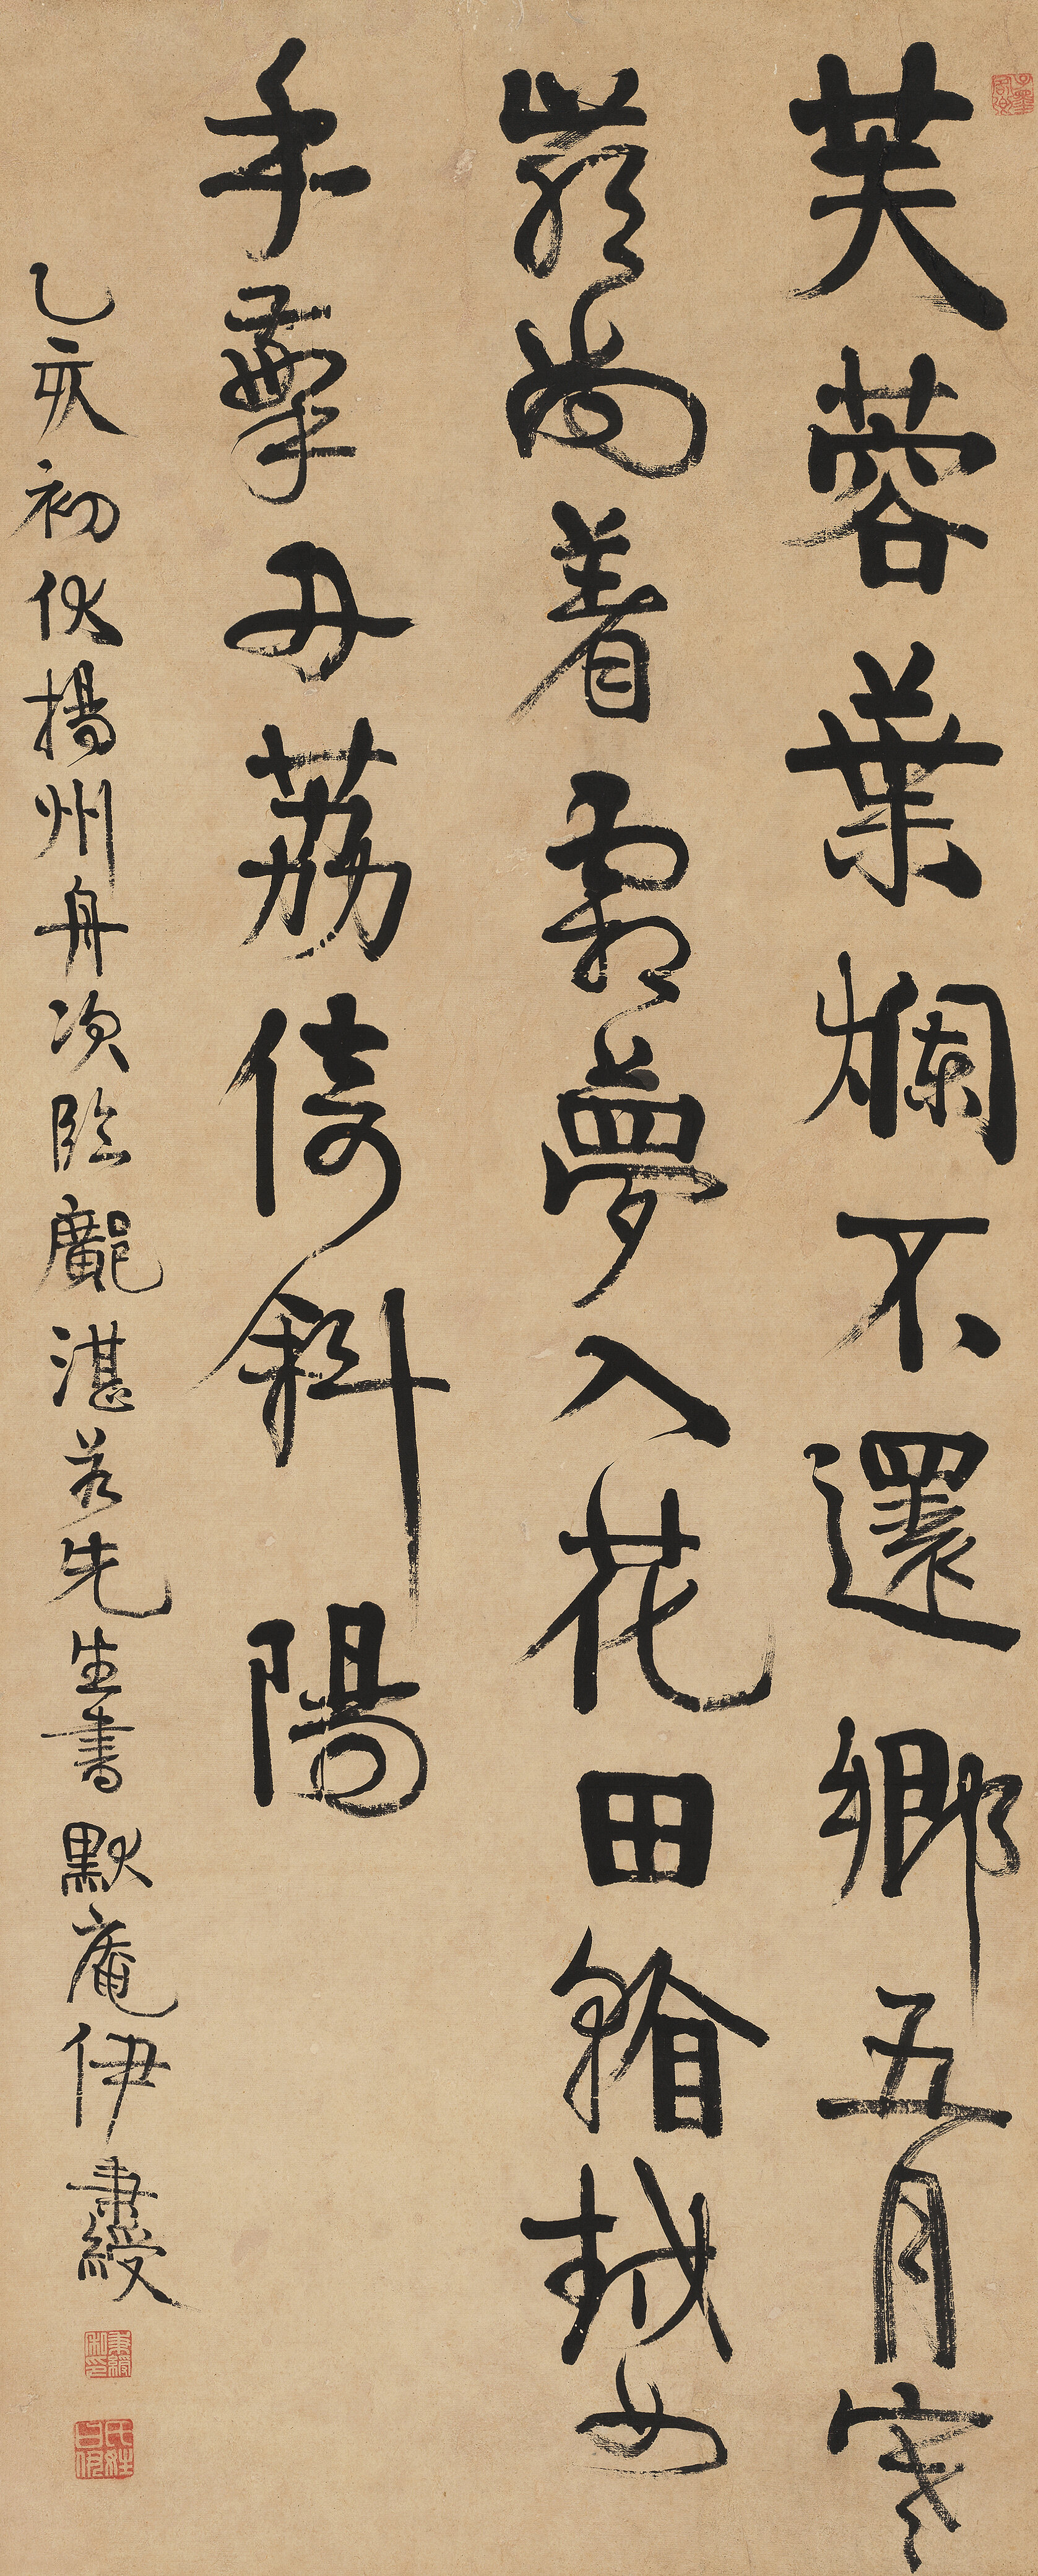 芙蓉葉爛不還鄉五月寒
巖尚着霜夢入花田輸越女
手攀丹荔倚斜陽
乙亥初伏揚州舟次臨鄺湛若先生書默庵伊秉綬